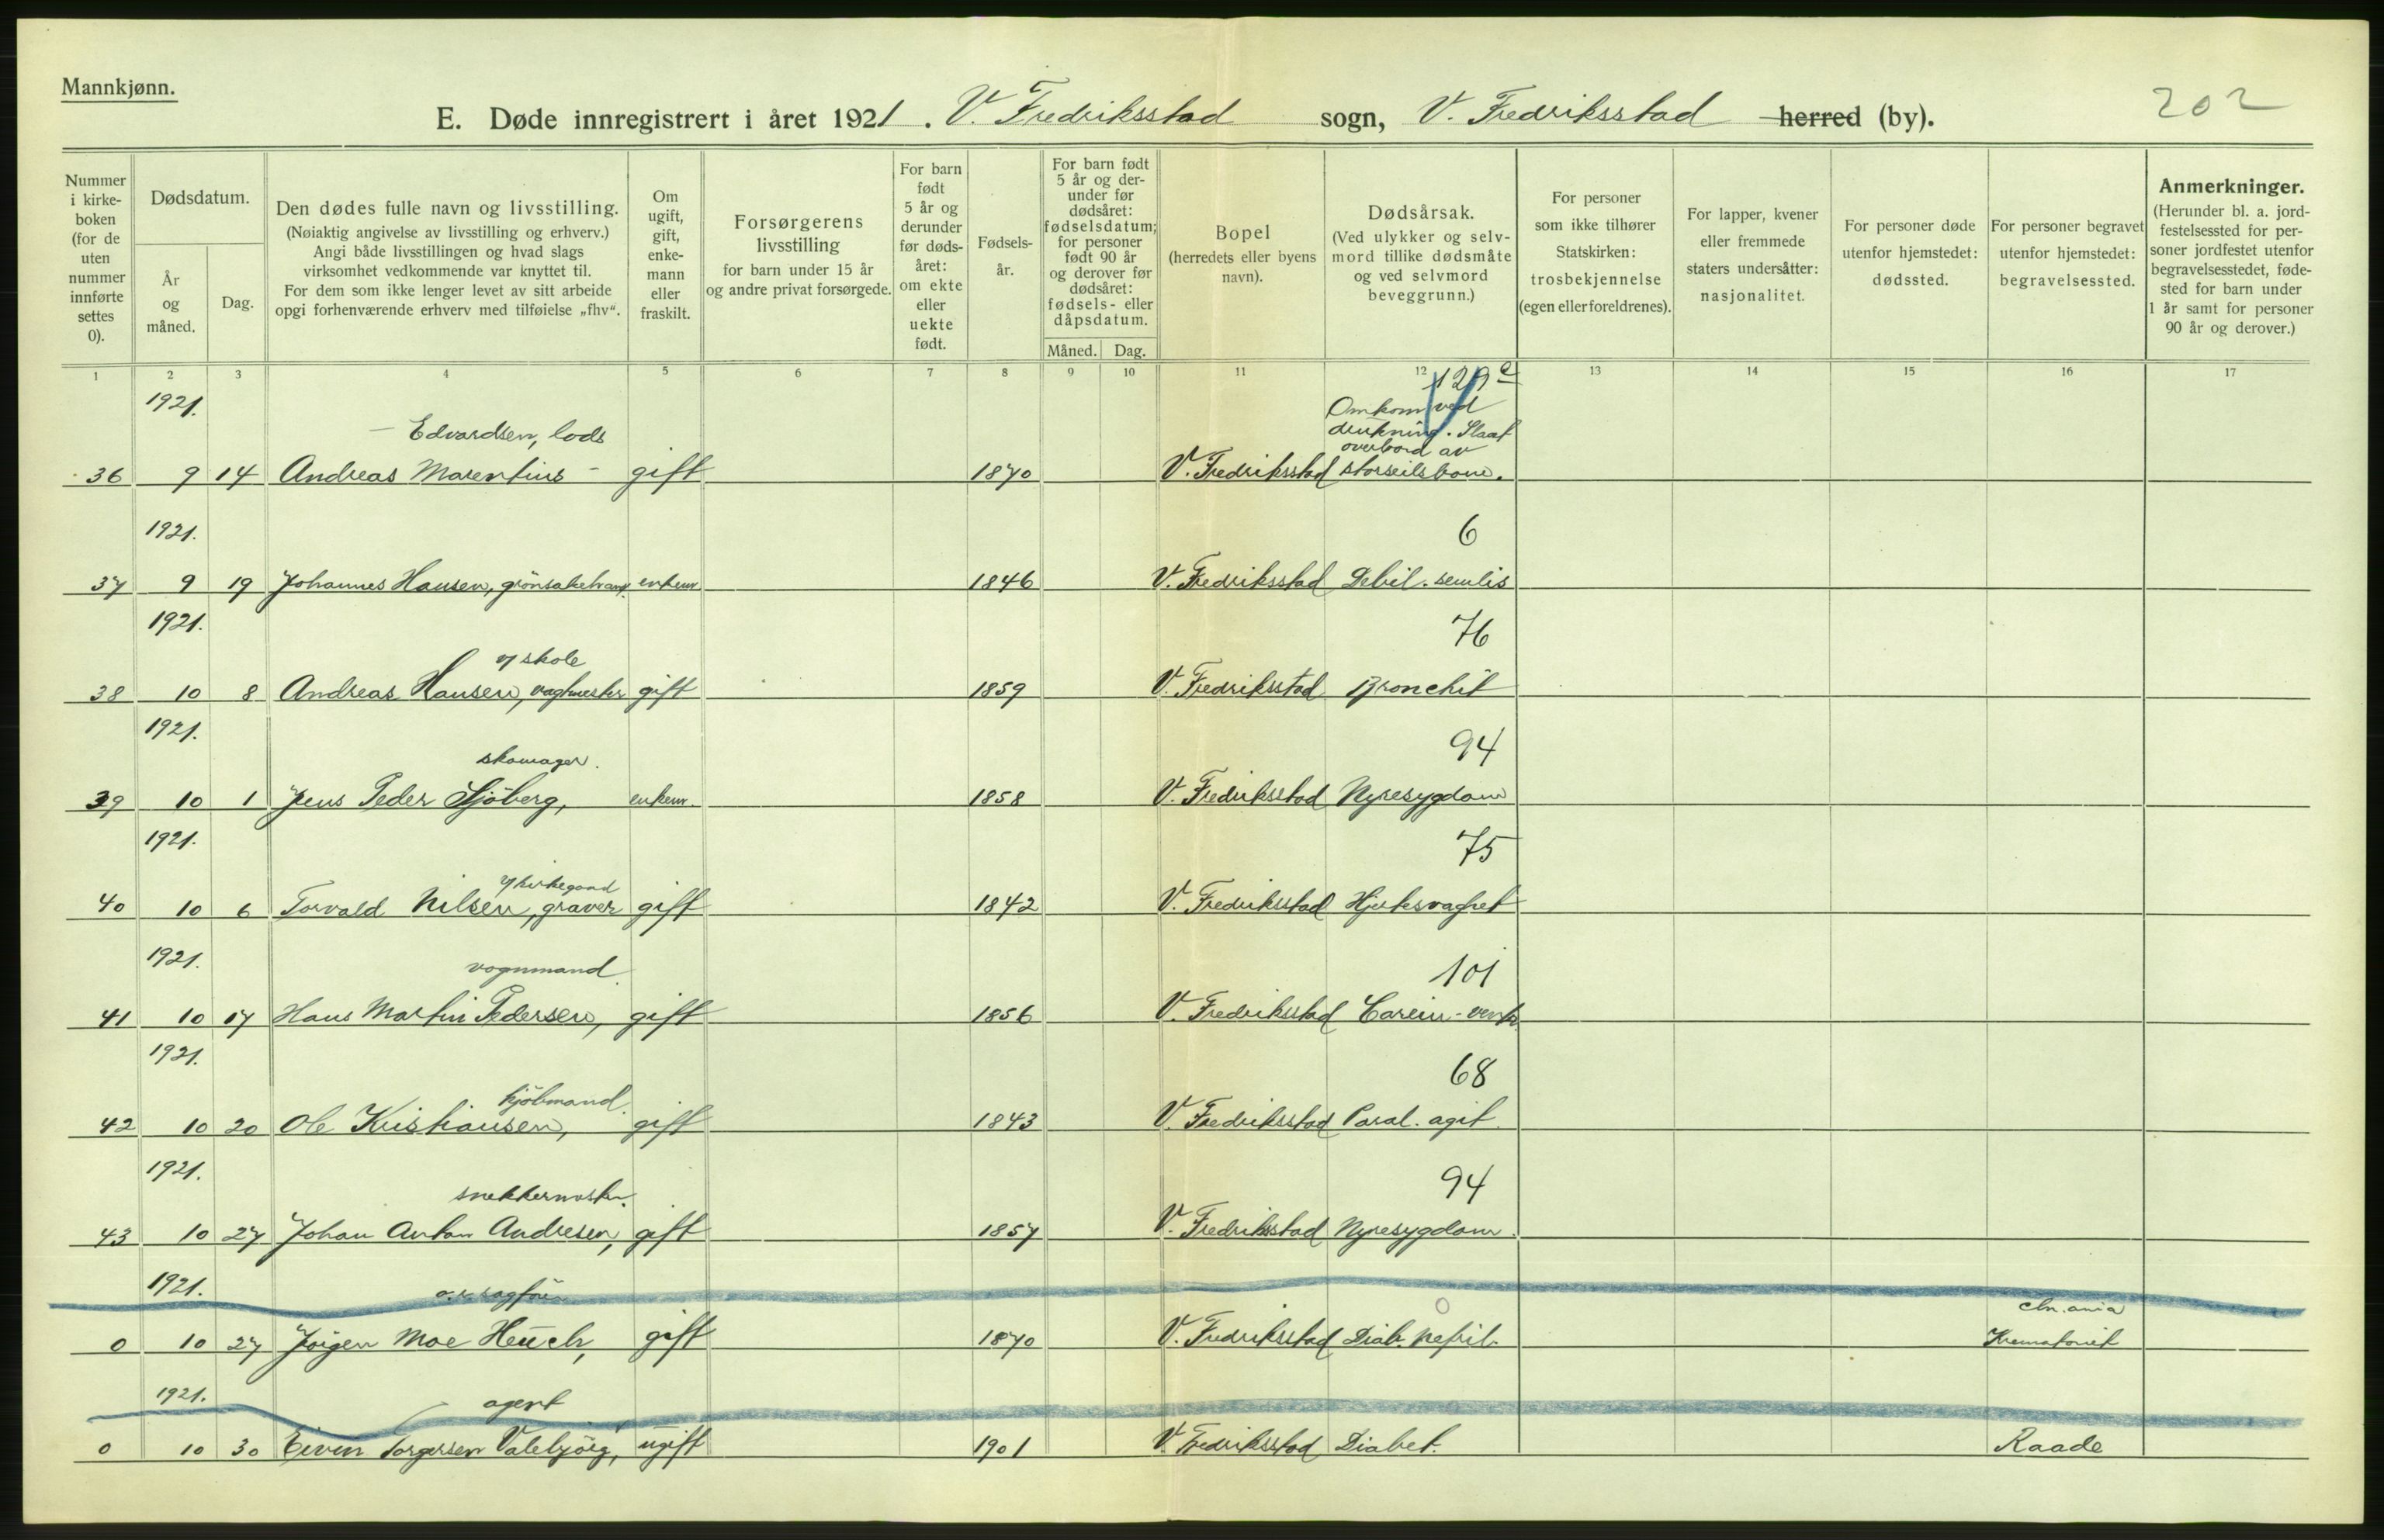 Mannkjønn.
202
E. Døde innregistrert i året 1921. V. Fredriksstad sogn, V. Fredriksstad herred (by).
Nummer i kirke-boken (for de uten nummer innførte settes 0).
Dødsdatum.
År og måned.
Dag.
Den dødes fulle navn og livsstilling.
(Nøiaktig angivelse av livsstilling og erhverv.)
Angi både livsstillingen og hvad slags
virksomhet vedkommende var knyttet til.
For dem som ikke lenger levet av sitt arbeide
opgi forhenværende erhverv med tilføielse „fhv“.
Om ugift, gift, enke-mann eller fraskilt.
Forsørgerens livsstilling
for barn under 15 år
og andre privat forsørgede.
For barn født 5 år og derunder før døds-året: om ekte eller uekte født.
Fødsels-år.
For barn født 5 år og der-under før dødsåret: fødselsdatum; for personer født 90 år og derover før dødsåret: fødsels- eller dåpsdatum.
Måned. Dag.
Bopel
(herredets eller byens navn).
Dødsårsak.
(Ved ulykker og selv-mord tillike dødsmåte og ved selvmord beveggrunn.)
For personer som ikke tilhører Statskirken: trosbekjennelse (egen eller foreldrenes).
For lapper, kvener eller fremmede staters undersåtter: nasjonalitet.
For personer døde utenfor hjemstedet: dødssted.
For personer begravet utenfor hjemstedet: begravelsessted.
Anmerkninger.
(Herunder bl. a. jord-festelsessted for per-soner jordfestet utenfor begravelsesstedet, føde-sted for barn under 1 år samt for personer 90 år og derover.)
1 2 3 4 5 6 7 8 9 10 11 12 13 14 15 16 17
1921. 129 c
Omkom ved
— Edvardsen, lods drukning. Slaat
overbord av
36 9 14 Andreas Marentius – gift 1870 V. Fredriksstad storseilsbom.
1921. 6
37 9 19 Johannes Hansen, enkem 1846 V. Fredriksstad Debil. senilis
1921. 76
v/ skole
38 10 8 Andreas Hansen, vagtmester gift 1859 V. Fredriksstad Bronchit
1921. 94
skomager.
39 10 1 Jens Peder Sjöberg, enkem. 1858 V. Fredriksstad Nyresygdom
1921. 75
v/ kirkegaard
40 10 6 Torvald Nilsen, graver gift 1842 V. Fredriksstad Hjertesvaghet
1921. 101
vognmand.
41 10 17 Hans Martin Pedersen, gift 1856 V. Fredriksstad Carcin. ventr.
1921. 68
kjöbmand.
42 10 20 Ole Kristiansen, gift 1843 V. Fredriksstad Paral. agit.
1921. 94
snekkermester.
43 10 27 Johan Anton Andresen, gift 1857 V. Fredriksstad Nyresygdom.
1921.
o.r. sagför. 0 Chr.ania
0 10 27 Jörgen Moe Heuch, gift 1870 V. Fredriksstad Diab. nefrit. Krematoriet
1921.
agent
0 10 30 Eivin Torgersen Valebjörg, ugift 1901 V. Fredriksstad Diabet. Raade